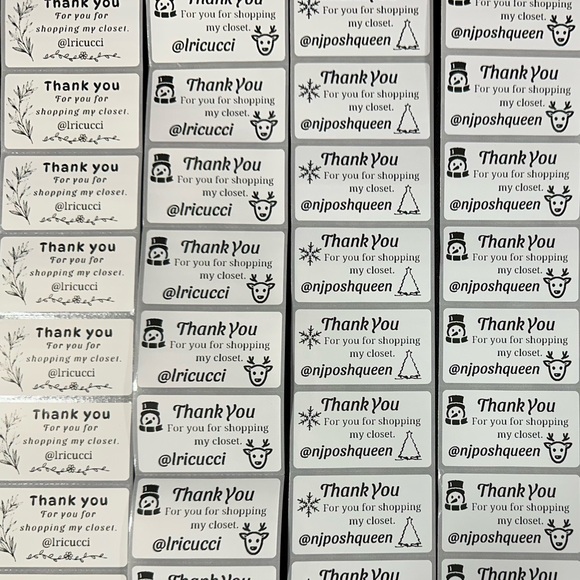 Thank you
For you for
shopping my closet.
@lricucci
Thank you
For you for
shopping my closet.
@lricucci
Thank you
For you for
shopping my closet.
@lricucci
Thank you
For you for
shopping my closet.
@lricucci
Thank you
For you for
shopping my closet.
@lricucci
Thank you
For you for
shopping my closet.
@lricucci
Thank you
For you for
shopping my closet.
@lricucci
For you for shopping
my closet.
@lricucci
Thank You
For you for shopping
my closet.
@lricucci
Thank You
For you for shopping
my closet.
@lricucci
Thank You
For you for shopping
my closet.
@lricucci
Thank You
For you for shopping
my closet.
@lricucci
Thank You
For you for shopping
my closet.
@lricucci
Thank You
For you for shopping
my closet.
@lricucci
Thank You
my closet.
@njposhqueen
Thank You
For you for shopping
my closet.
@njposhqueen
Thank You
For you for shopping
my closet.
@njposhqueen
Thank You
For you for shopping
my closet.
@njposhqueen
Thank You
For you for shopping
my closet.
@njposhqueen
Thank You
For you for shopping
my closet.
@njposhqueen
Thank You
For you for shopping
my closet.
@njposhqueen
Thank You
my closet.
@njposhqueen
Thank You
For you for shopping
my closet.
@njposhqueen
Thank You
For you for shopping
my closet.
@njposhqueen
Thank You
For you for shopping
my closet.
@njposhqueen
Thank You
For you for shopping
my closet.
@njposhqueen
Thank You
For you for shopping
my closet.
@njposhqueen
Thank You
For you for shopping
my closet.
@njposhqueen
Thank You